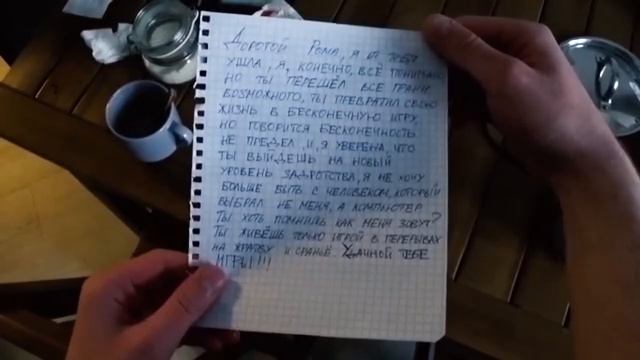 Дорогой Рома, я от тебя
ушла, я, конечно, всё понимаю
но ты перешёл все грани
возможного, ты превратил свою
жизнь в бесконечную игру,
но говорится бесконечность
не предел, и, я уверена, что
ты выйдешь на новый
уровень задротства, я не хочу
больше быть с человеком, который
выбрал не меня, а компьютер
Ты хоть помнишь как меня зовут?
Ты живёшь только игрой в перерывах
на жратву и сраньё. Удачной тебе
игры!!!